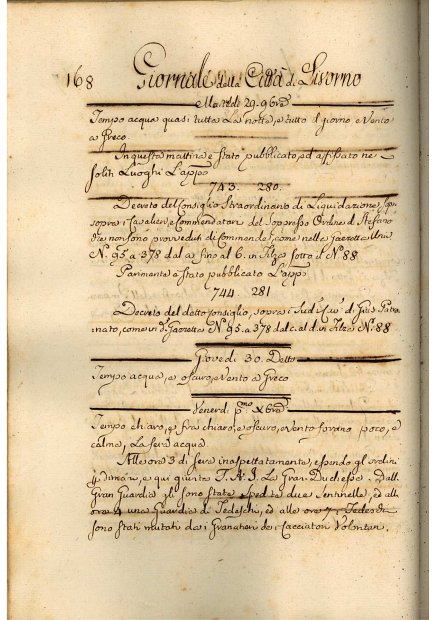 168 Giornale della Città di Livorno
Martedì 29. 9bre
Tempo acqua quasi tutta la notte, e tutto il giorno e Vento
a Greco.
In questa mattina è stato pubblicato, ed affissato ne
soliti Luoghi l'app.
743. 280.
Decreto del Consiglio Straordinario di Liquidazione,
sopra i Cavalieri, e Commendatori del Soppresso Ordine di S. Stefano
che non sono provveduti di Commende, come nelle Gazzette
N. 95. a 378 dal a fino al 6. in Filza sotto il N. 88
Parimente è stato pubblicato l'app.
744 281
Decreto del detto Consiglio, sopra i
nato, come in d. Gazzette N. 95. a 378 dal c. al d. in Filza N. 88
Giovedì 30. Detto
Tempo acqua, e oscuro, e Vento a Greco
Venerdì pmo Xbre
Tempo chiaro, e fra chiaro, e oscuro, e vento sovrano poco, e
calma, La sera acqua.
Alle ore 3 di sera inaspettatamente, essendo gli ordini
p dimani, è qui giunta S. A. I. La Gran Duchessa: Dalla
Gran Guardia gli sono state spedite due Sentinelle, ed alle
ore 4 una Guardia di Tedeschi, ed alle ore 7 i Tedeschi
sono stati mutati dai Granatieri dei Cacciatori Volontari.